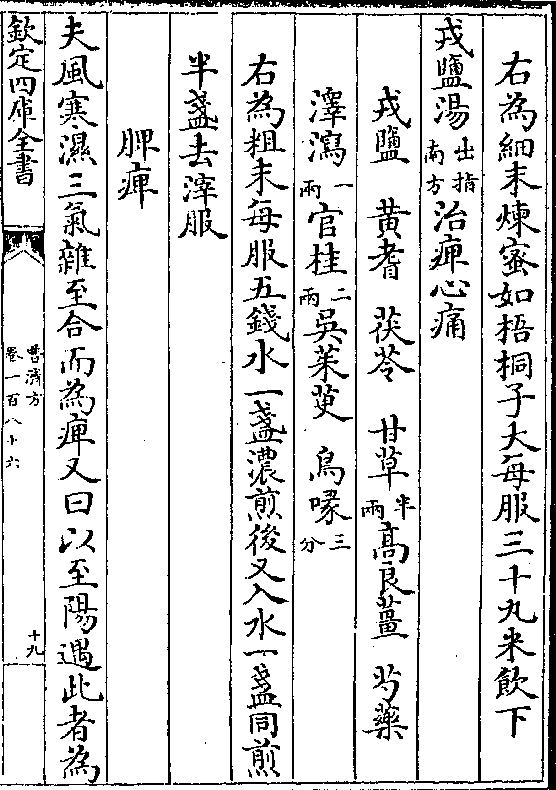 右為細末煉蜜如梧桐子大每服三十九米飲下
戎鹽湯出指南方治痺心痛
戎鹽　黄耆　茯苓　甘草半兩高良薑　芍藥
澤瀉一兩官桂二兩吳茱萸　烏喙三分
右為粗末每服五錢水一盞濃煎後又入水一盞同煎
半盞去滓服
脾痺
夫風寒濕三氣雜至合而為痺又曰以至陽遇此者為
欽定四庫全書
普濟方
卷一百八十六
十九